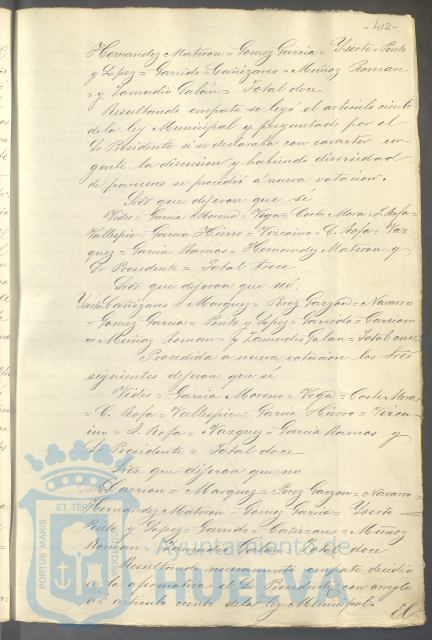 -412-
Hernandez Materon = Gomez Garcia = Yserte = Pinto
y Lopez = Garrido = Cañizares = Muñoz Roman
= y Zamudio Galan = Total doce
Resultando empate se leyó el artículo ciento
de la ley Municipal y preguntado por el
Sr Presidente si se declaraba con caracter ur-
gente la discusion y habiendo diversidad
de pareceres se procedió a nueva votacion.
Sres que dijeron que sí
Vides = Garcia Moreno = Vega = Corte Mora = J. Rofa =
Vallespin = Garcia Hierro = Vizcaino = C. Rofa = Vaz-
quez = Garcia Ramos = Hernandez Materon y
Sr Presidente = Total trece
Sres que dijeron que nó.
Yserte Cañizares = Marquez = Perez Garzon = Navarro
= Gomez Garcia = Pinto y Lopez = Garrido = Carrion
= Muñoz Roman = y Zamudio Galan = Total once
Procedida a nueva votacion los Sres
siguientes dijeron que sí
Vides = Garcia Moreno = Vega = Corte Mora
= C. Rofa = Vallespin = Garcia Hierro = Vizca-
ino = J. Rofa = Vazquez = Garcia Ramos y
Sr Presidente = Total doce
Sres que dijeron que no
Carrion = Marquez = Perez Garzon = Navarro =
Hernandez Materon = Gomez Garcia = Yserte =
Pinto y Lopez = Garrido = Cañizares = Muñoz
Roman = Zamudio Galan = Total doce
Resultando nuevamente empate decidió
la afirmativa el Sr Presidente con arreglo
al articulo ciento de la ley Municipal.
El
PORTUS MARIS ET TERRAE CUSTODIA
Ayuntamiento de
HUELVA